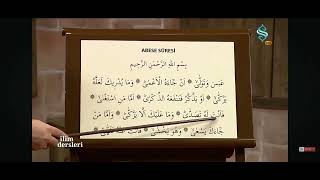 ABESE SÛRESİ
بِسْمِ اللّٰهِ الرَّحْمٰنِ الرَّحِيمِ
عَبَسَ وَتَوَلّٰىۙ ❁ اَنْ جَٓاءَهُ الْاَعْمٰىۜ ❁ وَمَا يُدْر۪يكَ لَعَلَّهُ
يَزَّكّٰىۙ ❁ اَوْ يَذَّكَّرُ فَتَنْفَعَهُ الذِّكْرٰىۜ ❁ اَمَّا مَنِ اسْتَغْنٰىۙ ❁
فَاَنْتَ لَهُ تَصَدّٰىۜ ❁ وَمَا عَلَيْكَ اَلَّا يَزَّكّٰىۜ ❁ وَاَمَّا مَنْ
جَٓاءَكَ يَسْعٰىۙ ❁ وَهُوَ يَخْشٰىۙ ❁ فَاَنْتَ عَنْهُ تَلَهّٰىۚ
ilim
dersleri